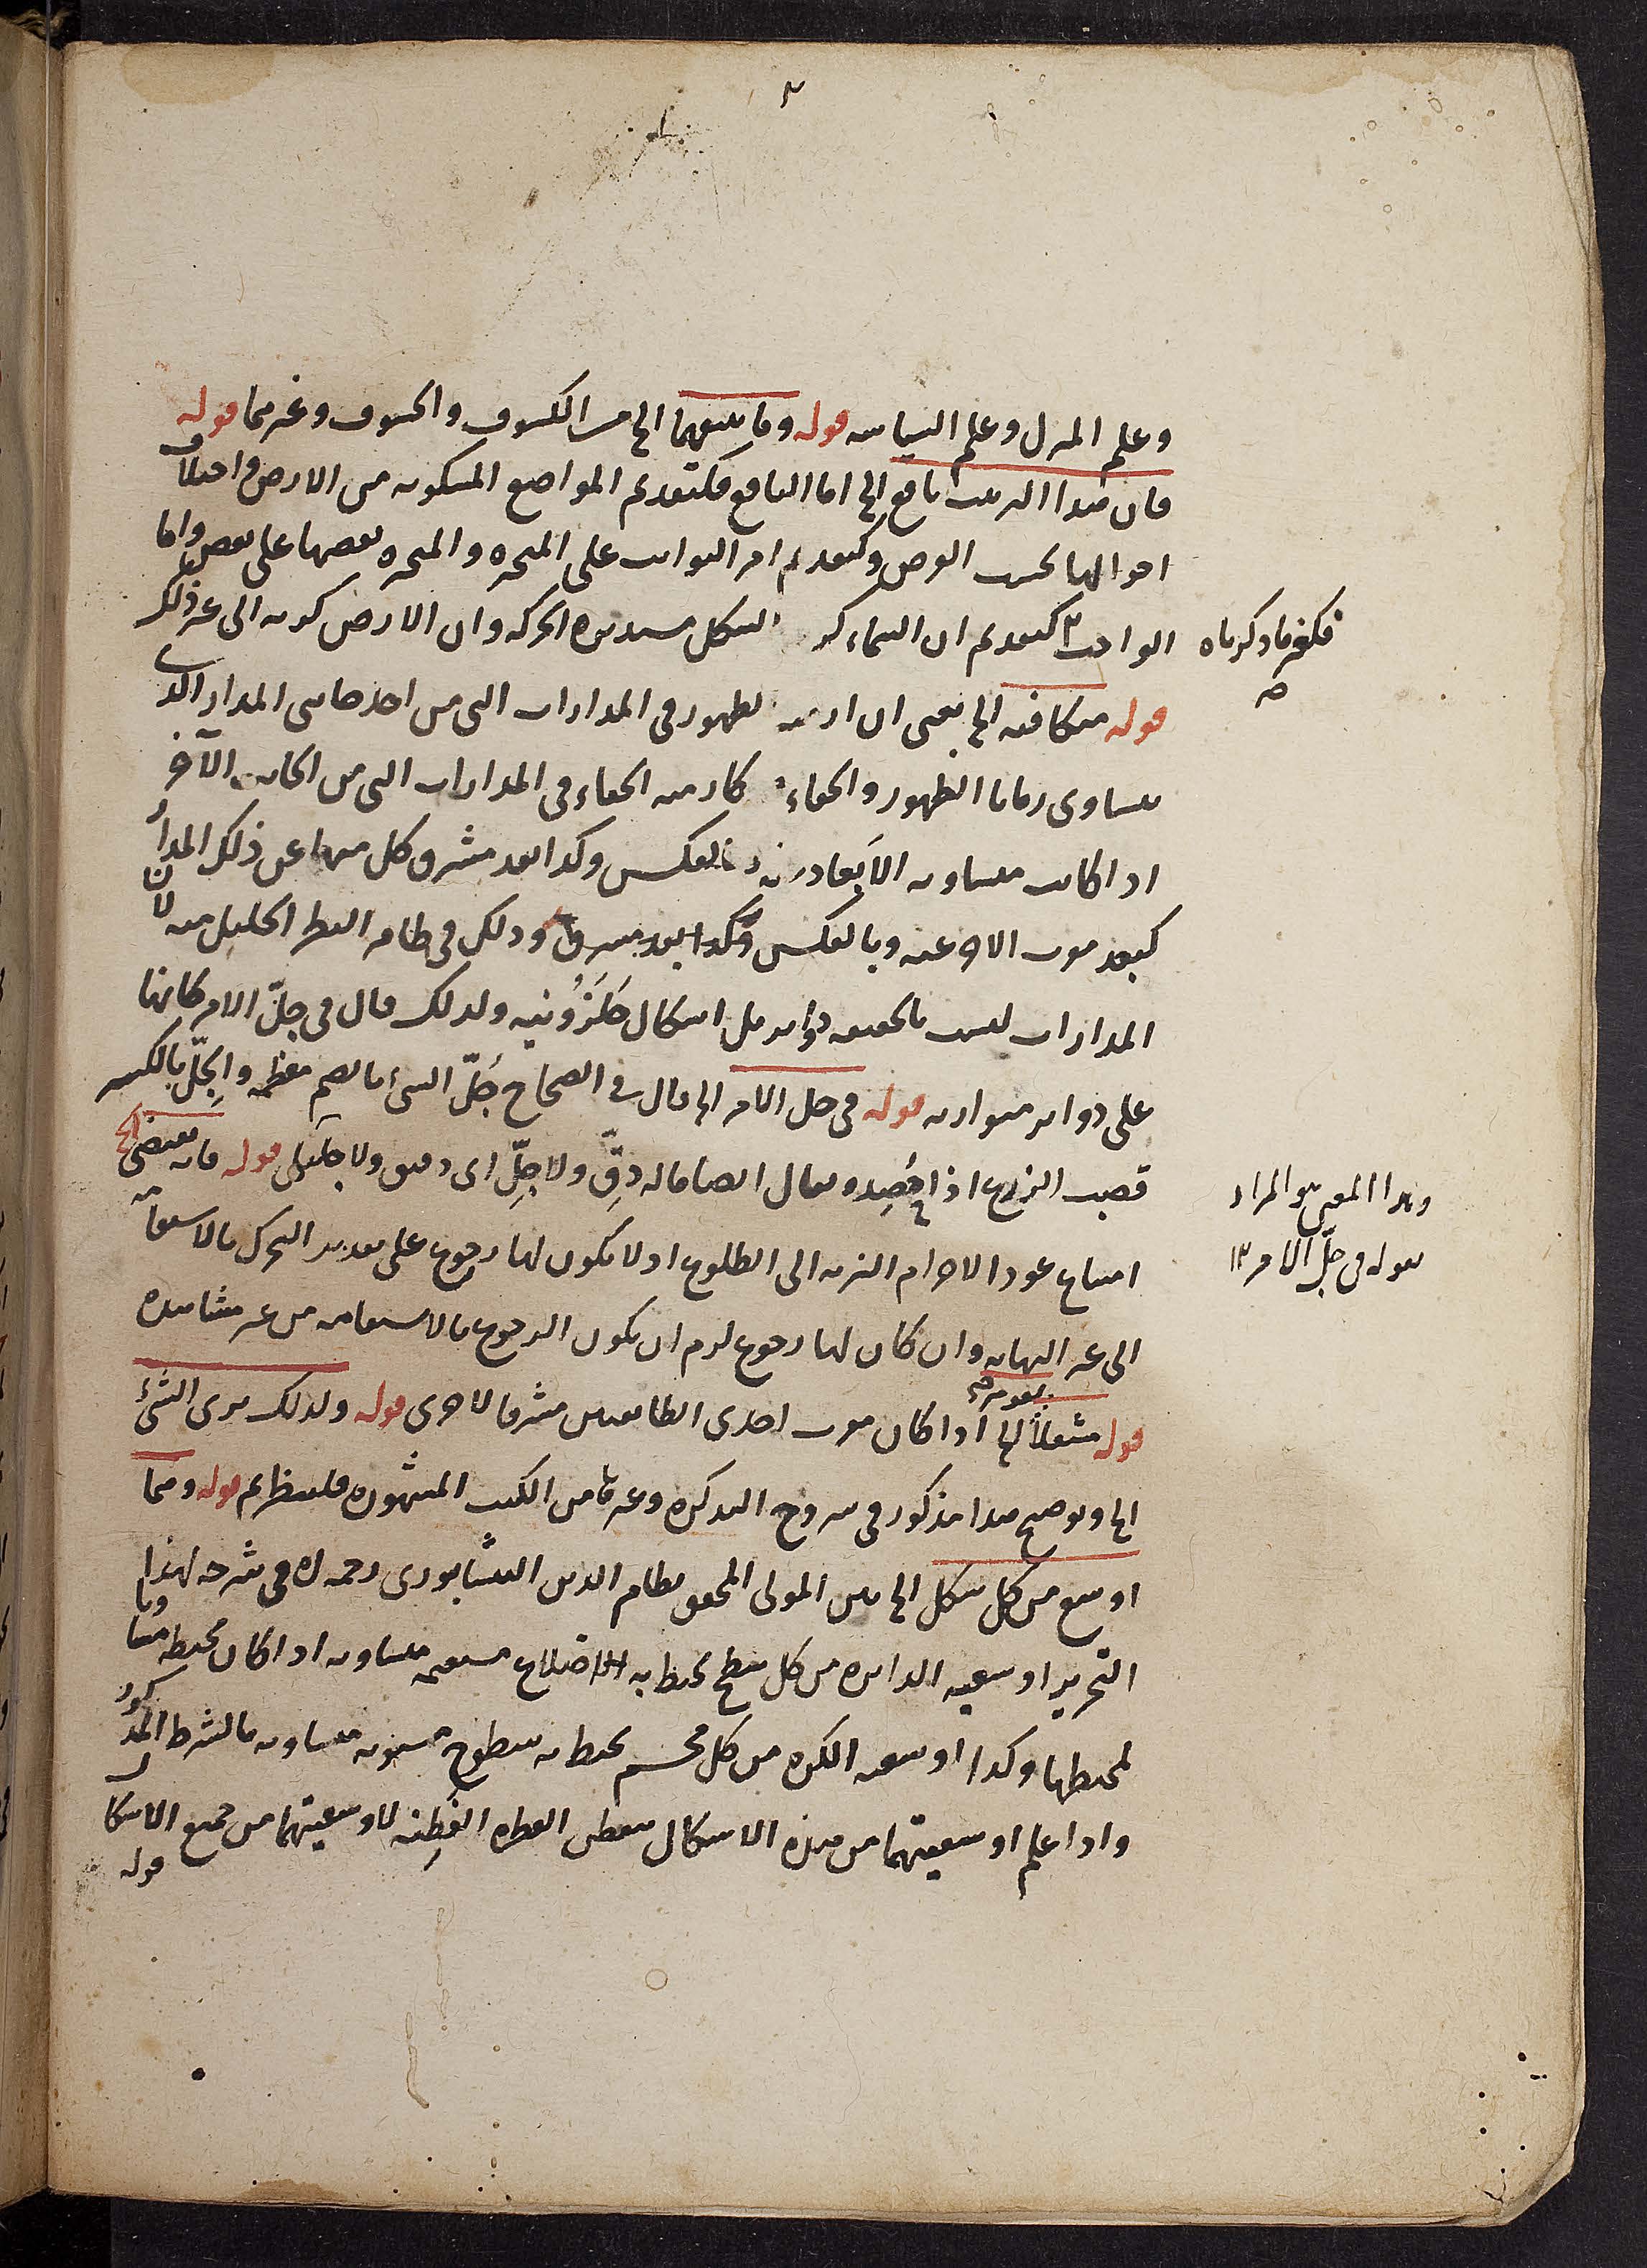 وعلم المنزل وعلم السياسه قوله وما يتبعهما الخ من الكسوف والخسوف وغيرهما قوله
فان هذا الترتيب نافع الخ اما النافع فكتقديم المواضع المسكونه من الارض واختلاف
احوالها بحسب العرض وكتقديم امر الثوابت على المتحيره والمتحيره بعضها على بعض واما
الواجب فكتقديم ان السماء الشكل مستديره الحركه وان الارض كريه الى غير ذلك
قوله متكافئه الخ يعنى ان ازمنه الظهور فى المدارات التى من احد جانبى المدار الذى
يتساوى زمانا الظهور والخفاء كازمنه الخفاء فى المدارات التى من الجانب الآخر
اذا كانت متساويه الأبعاد وبالعكس وكذا بعد مشرق كل منها عن ذلك المدار
كبعد مغرب الاخر عنه وبالعكس وكذا بعد مشرق وذلك فى ظاهر النظر الجليل منه لان
المدارات ليست بالحقيقه دوائر بل اشكال حَلَزُونيه ولذلك قال فى جلّ الامر كانها
على دوائر متوازيه قوله فى جل الامر الخ قال فى الصحاح جُلّ الشئ بالضم معظمه والجِلّ بالكسر
قصب الزرع اذا حُصِد ويقال ايضا ماله دِقّ ولا جِلّ اى دقيق ولا جليل قوله فانه يقتضى الخ
امتناع عود الاجرام النيره الى الطلوع اذ لا يكون لها رجوع على تقدير التحرك بالاستقامه
الى غير النهايه وان كان لها رجوع لزم ان يكون الرجوع بالاستقامه من غير مشاهده
قوله مشتعلاً الخ اذا كان مغرب احدى الطائفتين مشرقا لاخرى قوله ولذلك يرى الشئ
الخ وتوضيح هذا مذكور فى شروح التذكره وغيرها من الكتب المشهوره فلينظر ثم قوله ومما
اوسع من كل شكل الخ بين المولى المحقق نظام الدين النيشابورى رحمه الله فى شرحه لهذا
التحرير اوسعيه الدائره من كل سطح يحيط به اضلاع مستقيمه متساويه اذا كان محيطه مساويا
لمحيطها وكذا اوسعيه الكره من كل مجسم يحيط به سطوح مستويه متساويه بالشرط المذكور
واذا علم اوسعيتهما من هذه الاشكال يتفطن الفطره الفَطِنه لاوسعيتهما من جميع الاشكال
قوله
فكغير ما ذكرناه
صح
وهذا المعنى هو المراد
بقوله فى جلّ الامر ١٢